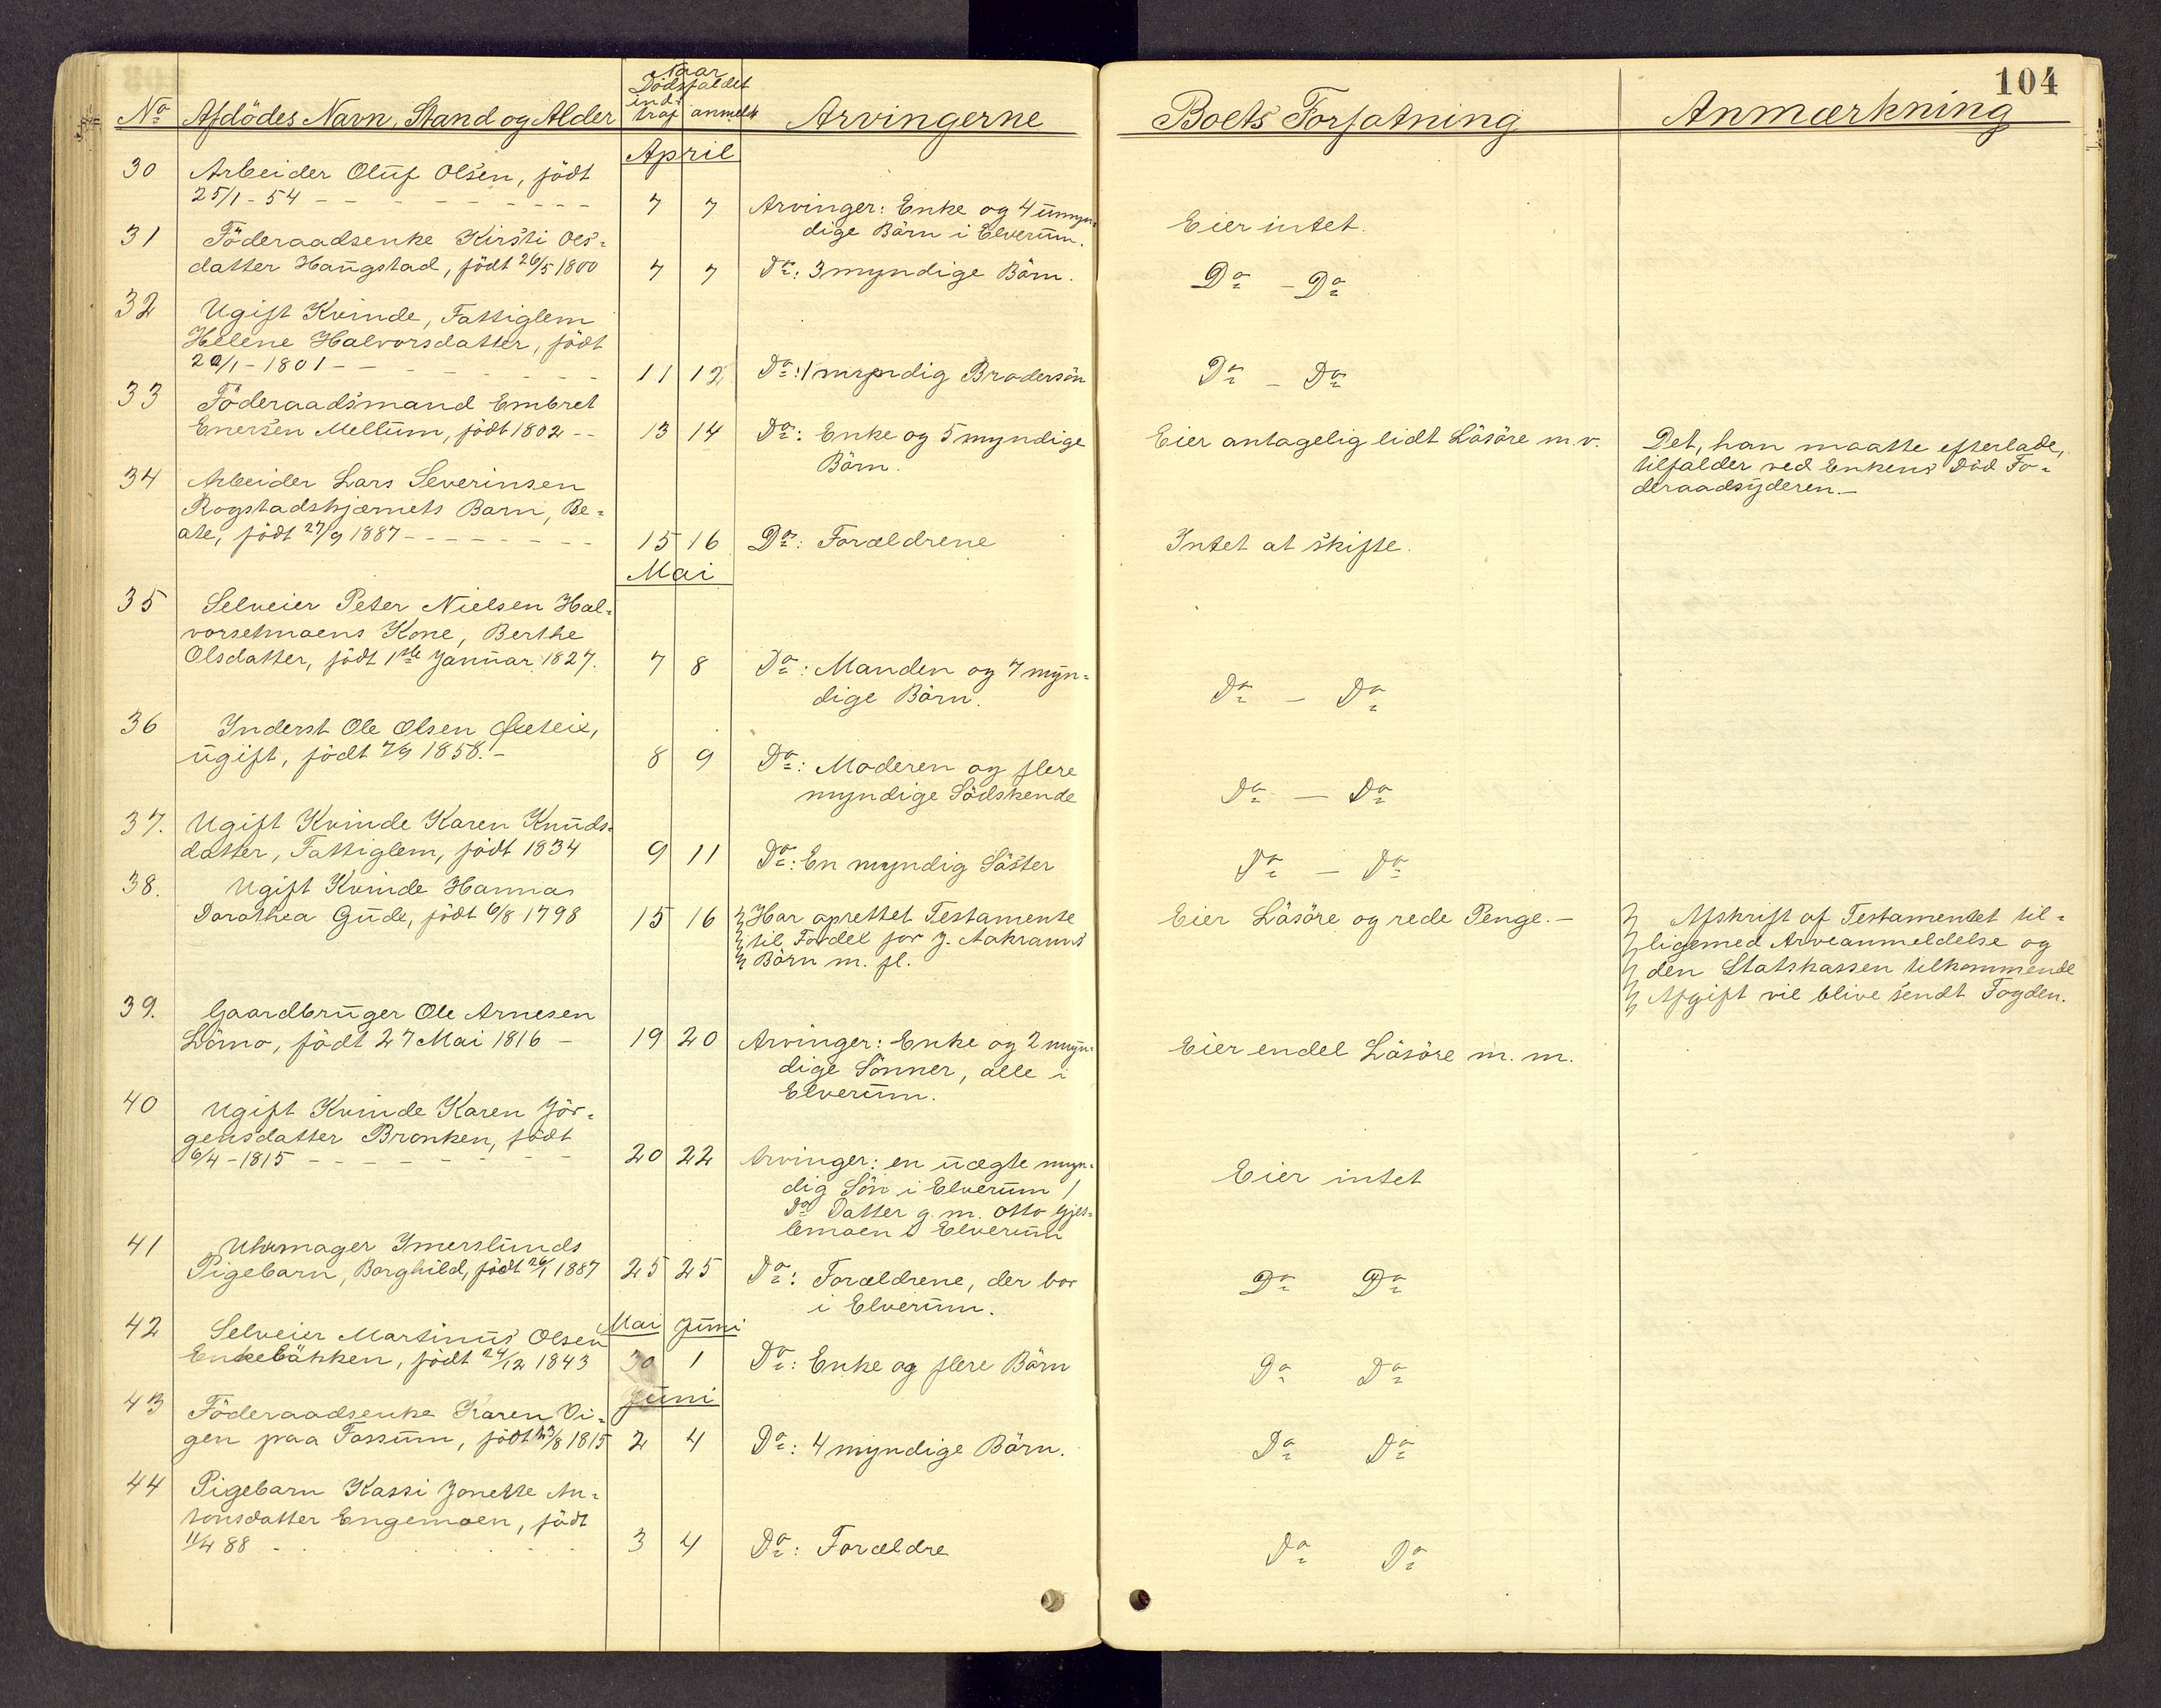 104
No Afdödes Navn, Stand og Alder Naar Dödsfaldet indtraf anmeldt Arvingerne Boets Forfatning Anmærkning
April
30 Arbeider Oluf Olsen, födt
25/1 - 54 7 7 Arvinger: Enke og 4 umyn=
dige Börn i Elverum. Eier intet.
31 Föderaadsenke Kirsti Ols=
datter Haugstad, födt 26/5 1800 7 7 Do: 3 myndige Börn. Do - Do
32 Ugift Kvinde, Fattiglem
Helene Halvorsdatter, födt
/1 - 1801 11 12 Do: 1 myndig Brodersön Do - Do
33 Föderaadsmand Embret
Enersen Mellum, födt 1802 -- 13 14 Do: Enke og 5 myndige
Börn. Eier antagelig lidt Lösöre m.v. Det, han maatte efterlade,
tilfalder ved Enkens Död Fö=
deraadsyderen.-
34 Arbeider Lars Severinsen
Rogstadskjærnets Barn, Be=
ate, födt 27/9 1887 15 16 Do: Forældrene Intet at skifte.
Mai
35 Selveier Peter Nielsen Hal=
vorsetmoens Kone, Berthe
Olsdatter, födt 1ste Januar 1827. 7 8 Do: Manden og 7 myn=
dige Börn. Do - Do
36 Inderst Ole Olsen
ugift, födt 7/9 1858.- 8 9 Do: Moderen og flere
myndige Södskende Do - Do
37. Ugift Kvinde Karen Knuds=
datter, Fattiglem, födt 1834 9 11 Do: En myndig Söster Do - Do
38. Ugift Kvinde Hanna
Dorothea Gude, födt 6/8 1798 15 16 Har oprettet Testamente
til Fordel for J. Aakranns
Börn m. fl. Eier Lösöre og rede Penge.- Afskrift af Testamentet til=
ligemed Arveanmeldelse og
den Statskassen tilkommende
Afgift vil blive sendt Fogden.
39. Gaardbruger Ole Arnesen
Lömo, födt 27 Mai 1816 - 19 20 Arvinger: Enke og 2 myn=
dige Sönner, alle i
Elverum. Eier endel Lösöre m. m.
40 Ugift Kvinde Karen Jör=
gensdatter Bronken, födt
6/4 - 1815 20 22 Arvinger: en uægte myn=
dig Sön i Elverum 1
Do Datter g. m. Otto Gjes=
lemoen i Elverum Eier intet
41 Uhrmager Imerslunds
Pigebarn, Borghild, födt 26/1 1887 25 25 Do: Forældrene, der bor
i Elverum. Do Do
Mai Juni
42 Selveier Martinus Olsen
Enkebäkken, födt 24/12 1843 30 1 Do: Enke og flere Börn Do Do
Juni
43 Föderaadsenke Karen Vi=
gen paa Fossum, födt 23/8 1815 2 4 Do: 4 myndige Börn. Do Do
44 Pigebarn Kassi Jonette An=
tonsdatter Engemoen, födt
11/4 88 3 4 Do: Forældre Do Do